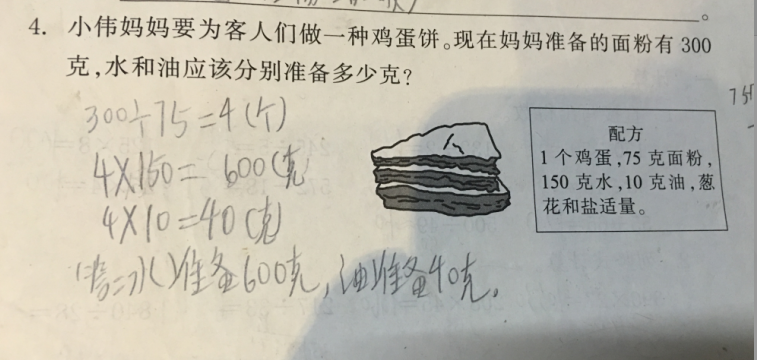 4. 小伟妈妈要为客人们做一种鸡蛋饼。现在妈妈准备的面粉有 300
克,水和油应该分别准备多少克?
300÷75=4(个)
4×150=600(克
4×10=40(克)
答:水准备600克,油准备40克。
配方
1 个鸡蛋,75 克面粉,
150 克水,10 克油,葱
花和盐适量。
75